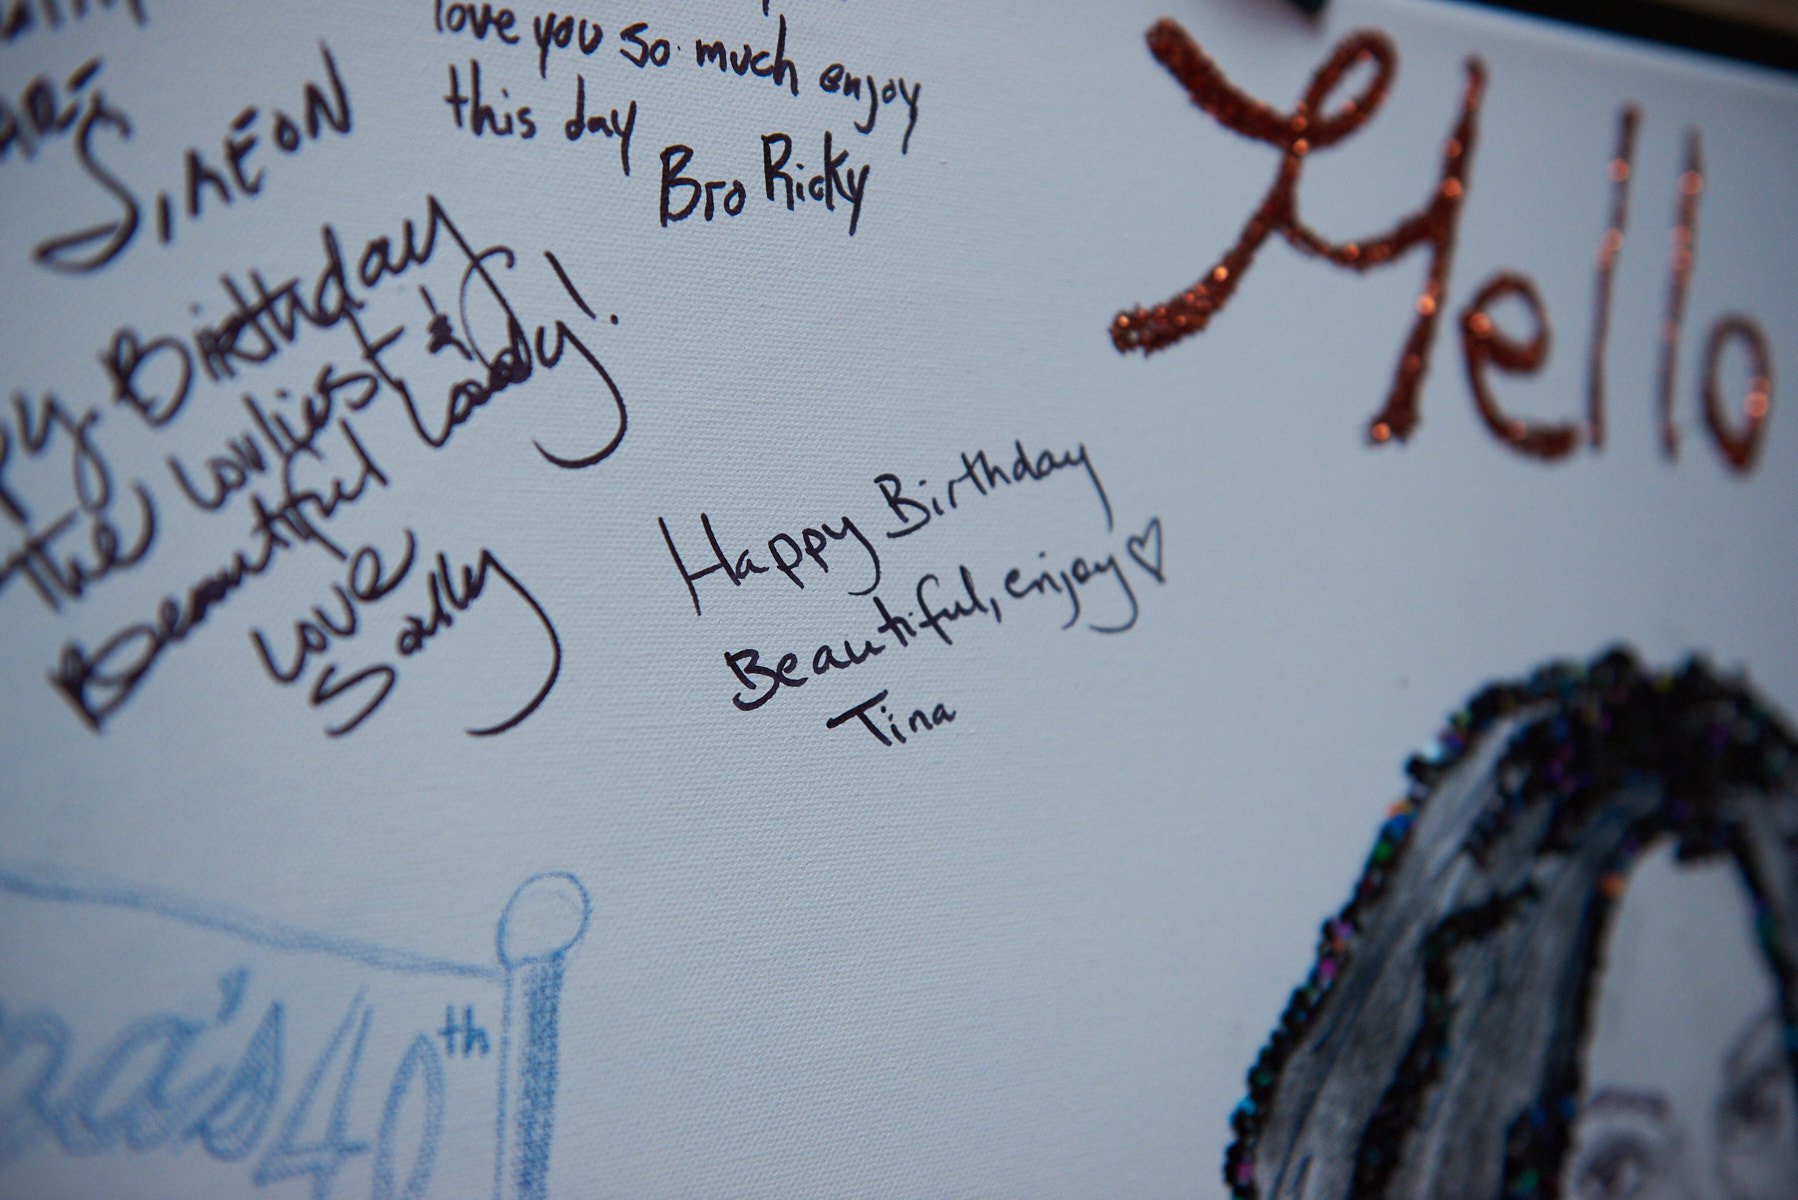 SIMEON
love you so much enjoy
this day
Bro Ricky
Hello
Birthday
the Lovliest &
Beautiful Lady!
Love
Sally
Happy Birthday
Beautiful, enjoy ♡
Tina
40th